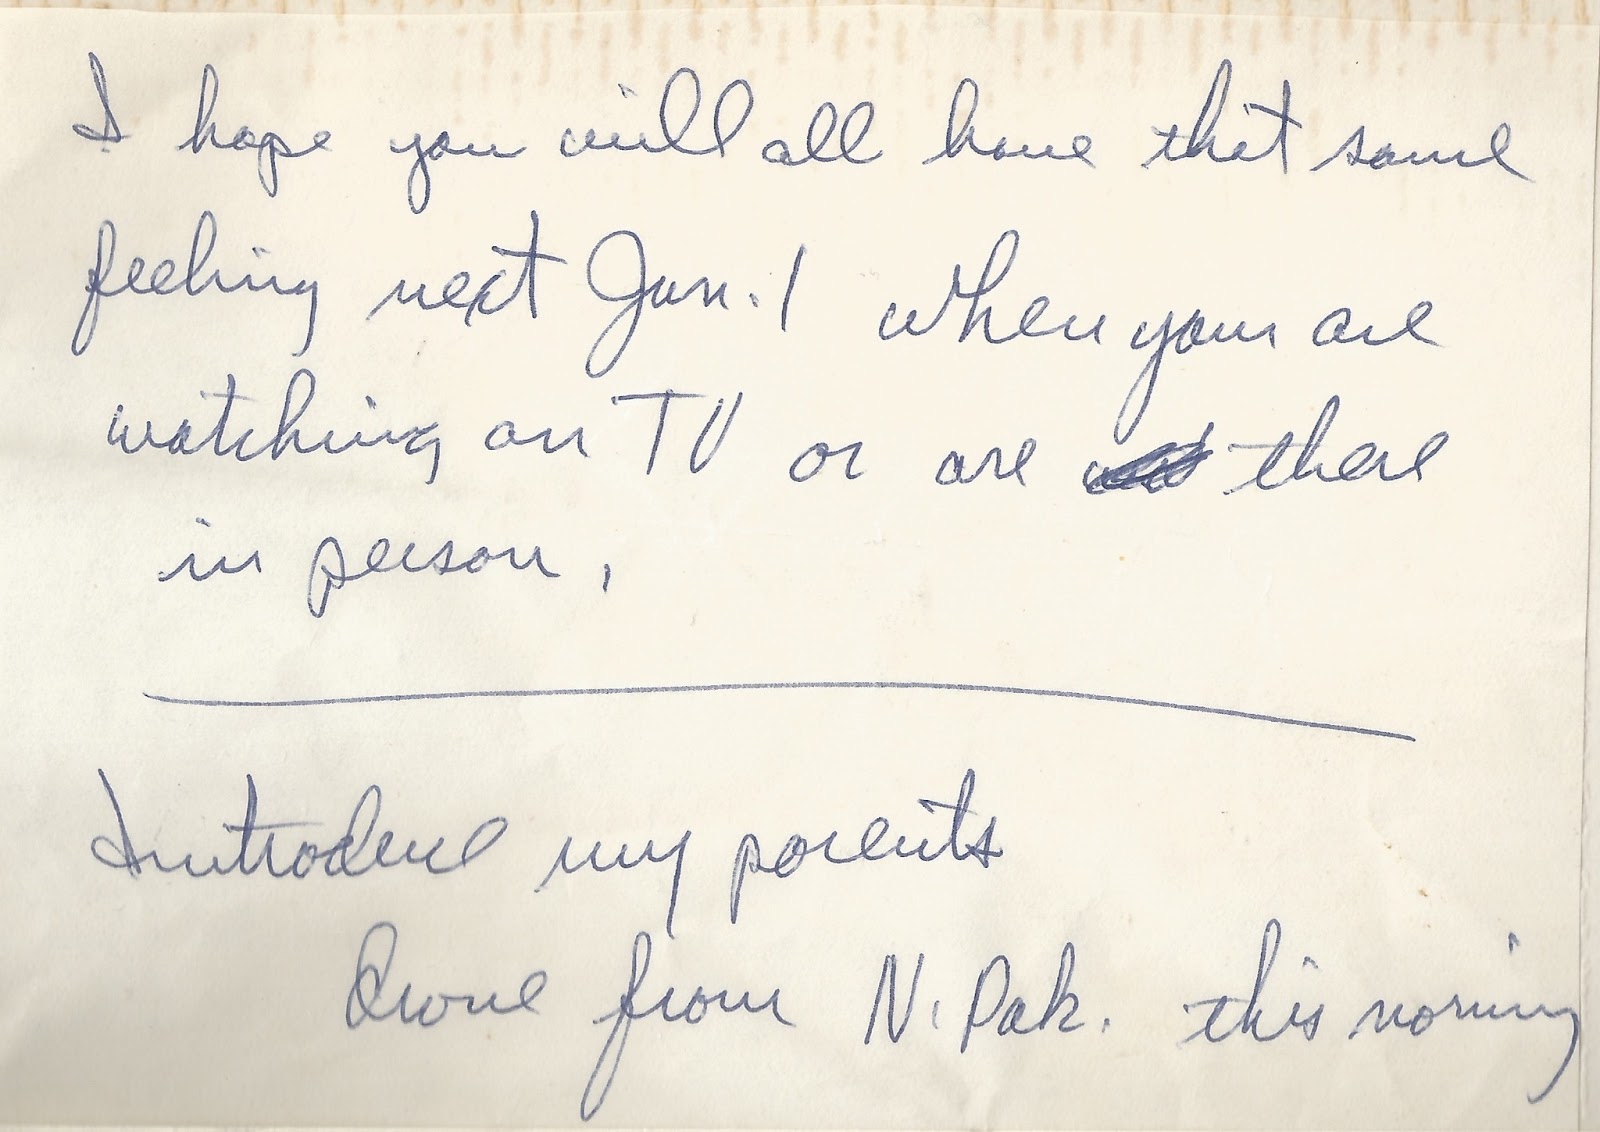 I hope you will all have that same
feeling next Jan. 1 when you are
watching on TV or are there
in person.
Introduce my parents
Drove from N. Dak. this morning